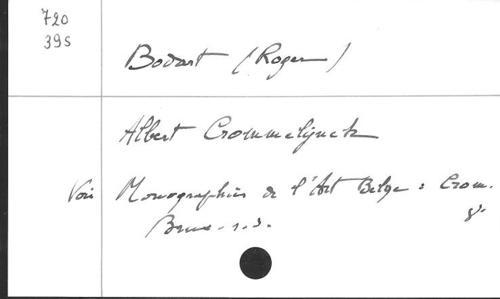 720
395
Bodart (Roger)
Albert Crommelijnck
Voir Monographies de l'Art Belge : Crom.
Brux. s.d. 8°